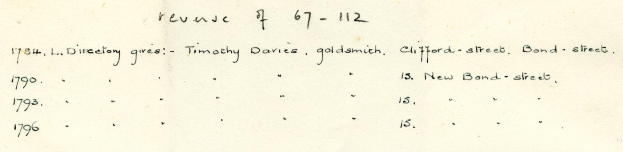 reverse of 67-112
1784. L. Directory gives:- Timothy Davies, goldsmith. Clifford-street. Bond-street.
1790. " " " " " " 15. New Bond-street.
1793. " " " " " " 15. " " "
1796 " " " " " " 15. " " "